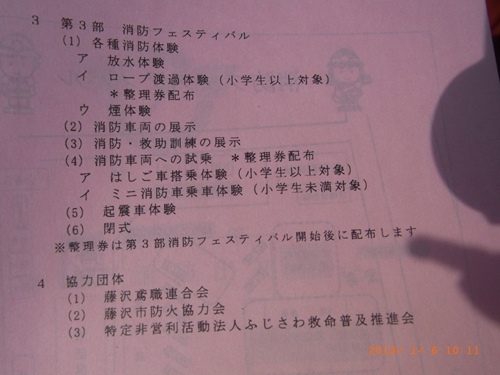 3 第3部 消防フェスティバル
(1) 各種消防体験
ア 放水体験
イ ロープ渡過体験(小学生以上対象)
*整理券配布
ウ 煙体験
(2) 消防車両の展示
(3) 消防・救助訓練の展示
(4) 消防車両への試乗 *整理券配布
ア はしご車搭乗体験(小学生以上対象)
イ ミニ消防車乗車体験(小学生未満対象)
(5) 起震車体験
(6) 閉式
※整理券は第3部消防フェスティバル開始後に配布します
4 協力団体
(1) 藤沢鳶職連合会
(2) 藤沢市防火協力会
(3) 特定非営利活動法人ふじさわ救命普及推進会
10:11